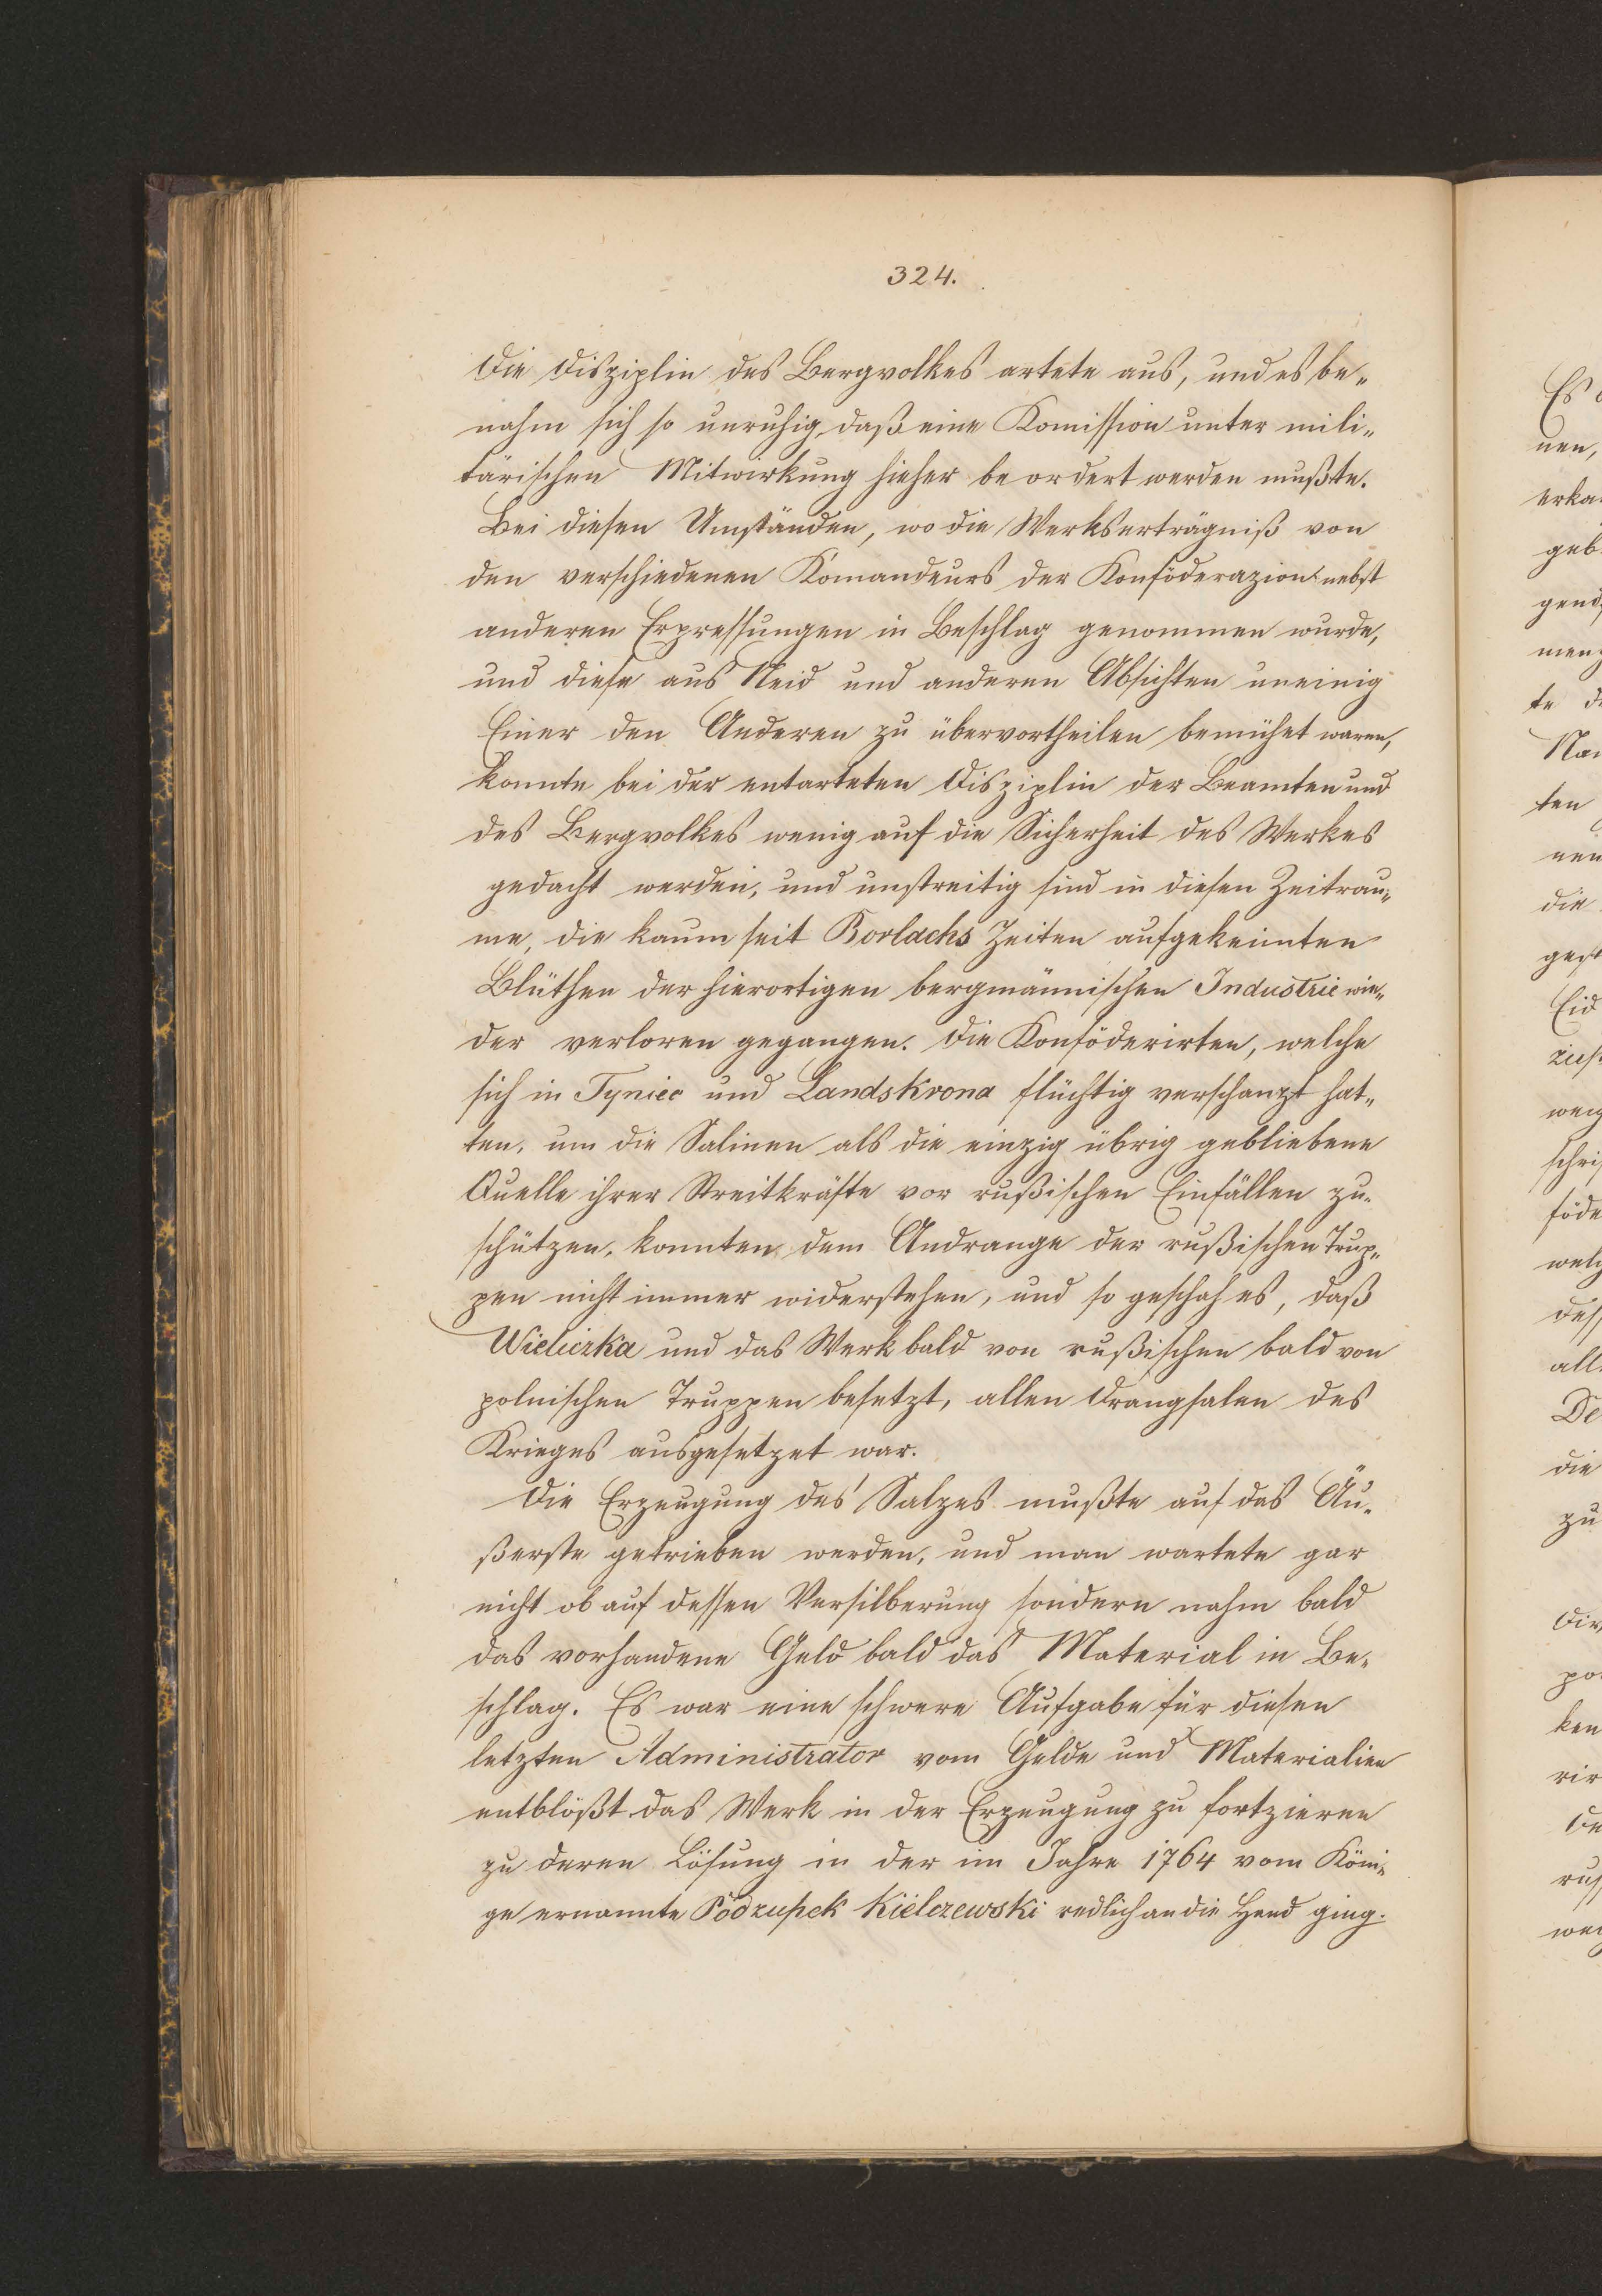 324.
Die Disziplin des Bergvolkes artete aus, und es be„
nahm sich so unruhig, daß eine Komission unter mili„
tärischen Mitwirkung hieher be ordert werden mußte.
Bei diesen Umständen, wo die Werkserträgniß von
den verschiedenen Komandeurs der Konföderazion nebst
anderen Erpressungen in Beschlag genommen wurde,
und diese aus Neid und anderen Absichten uneinig
Einer den Anderen zu übervortheilen bemühet waren,
konnte bei der entarteten Disziplin der Beamten und
des Bergvolkes wenig auf die Sicherheit des Werkes
gedacht werden, und unstreitig sind in diesen Zeitrau„
me, die kaum seit Borlachs Zeiten aufgekeimten
Blüthen der hierortigen bergmännischen Industrie wie„
der verloren gegangen. Die Konföderirten, welche
sich in Tyniec und Landskrona flüchtig verschanzt hat„
ten, um die Salinen als die einzig übrig gebliebene
Quelle ihrer Streitkräfte vor rußischen Einfällen zu„
schützen, konnten dem Andrange der rußischen Trup„
pen nicht immer widerstehen, und so geschah es, daß
Wieliczka und das Werk bald von rußischen bald von
polnischen Truppen besetzt, allen Drangsalen des
Krieges ausgesetzet war.
Die Erzeugung des Salzes mußte auf das Äu„
ßerste getrieben werden, und man wartete gar
nicht ob auf dessen Versilberung sondern nahm bald
das vorhandene Geld bald das Material in Be„
schlag. Es war eine schwere Aufgabe für diesen
letzten Administrator vom Gelde und Materialien
entblößt das Werk in der Erzeugung zu fortzieren
zu deren Lösung in der im Jahre 1764 vom Köni„
ge ernannte Podzupek Kielczewski redlich an die Hand ging.